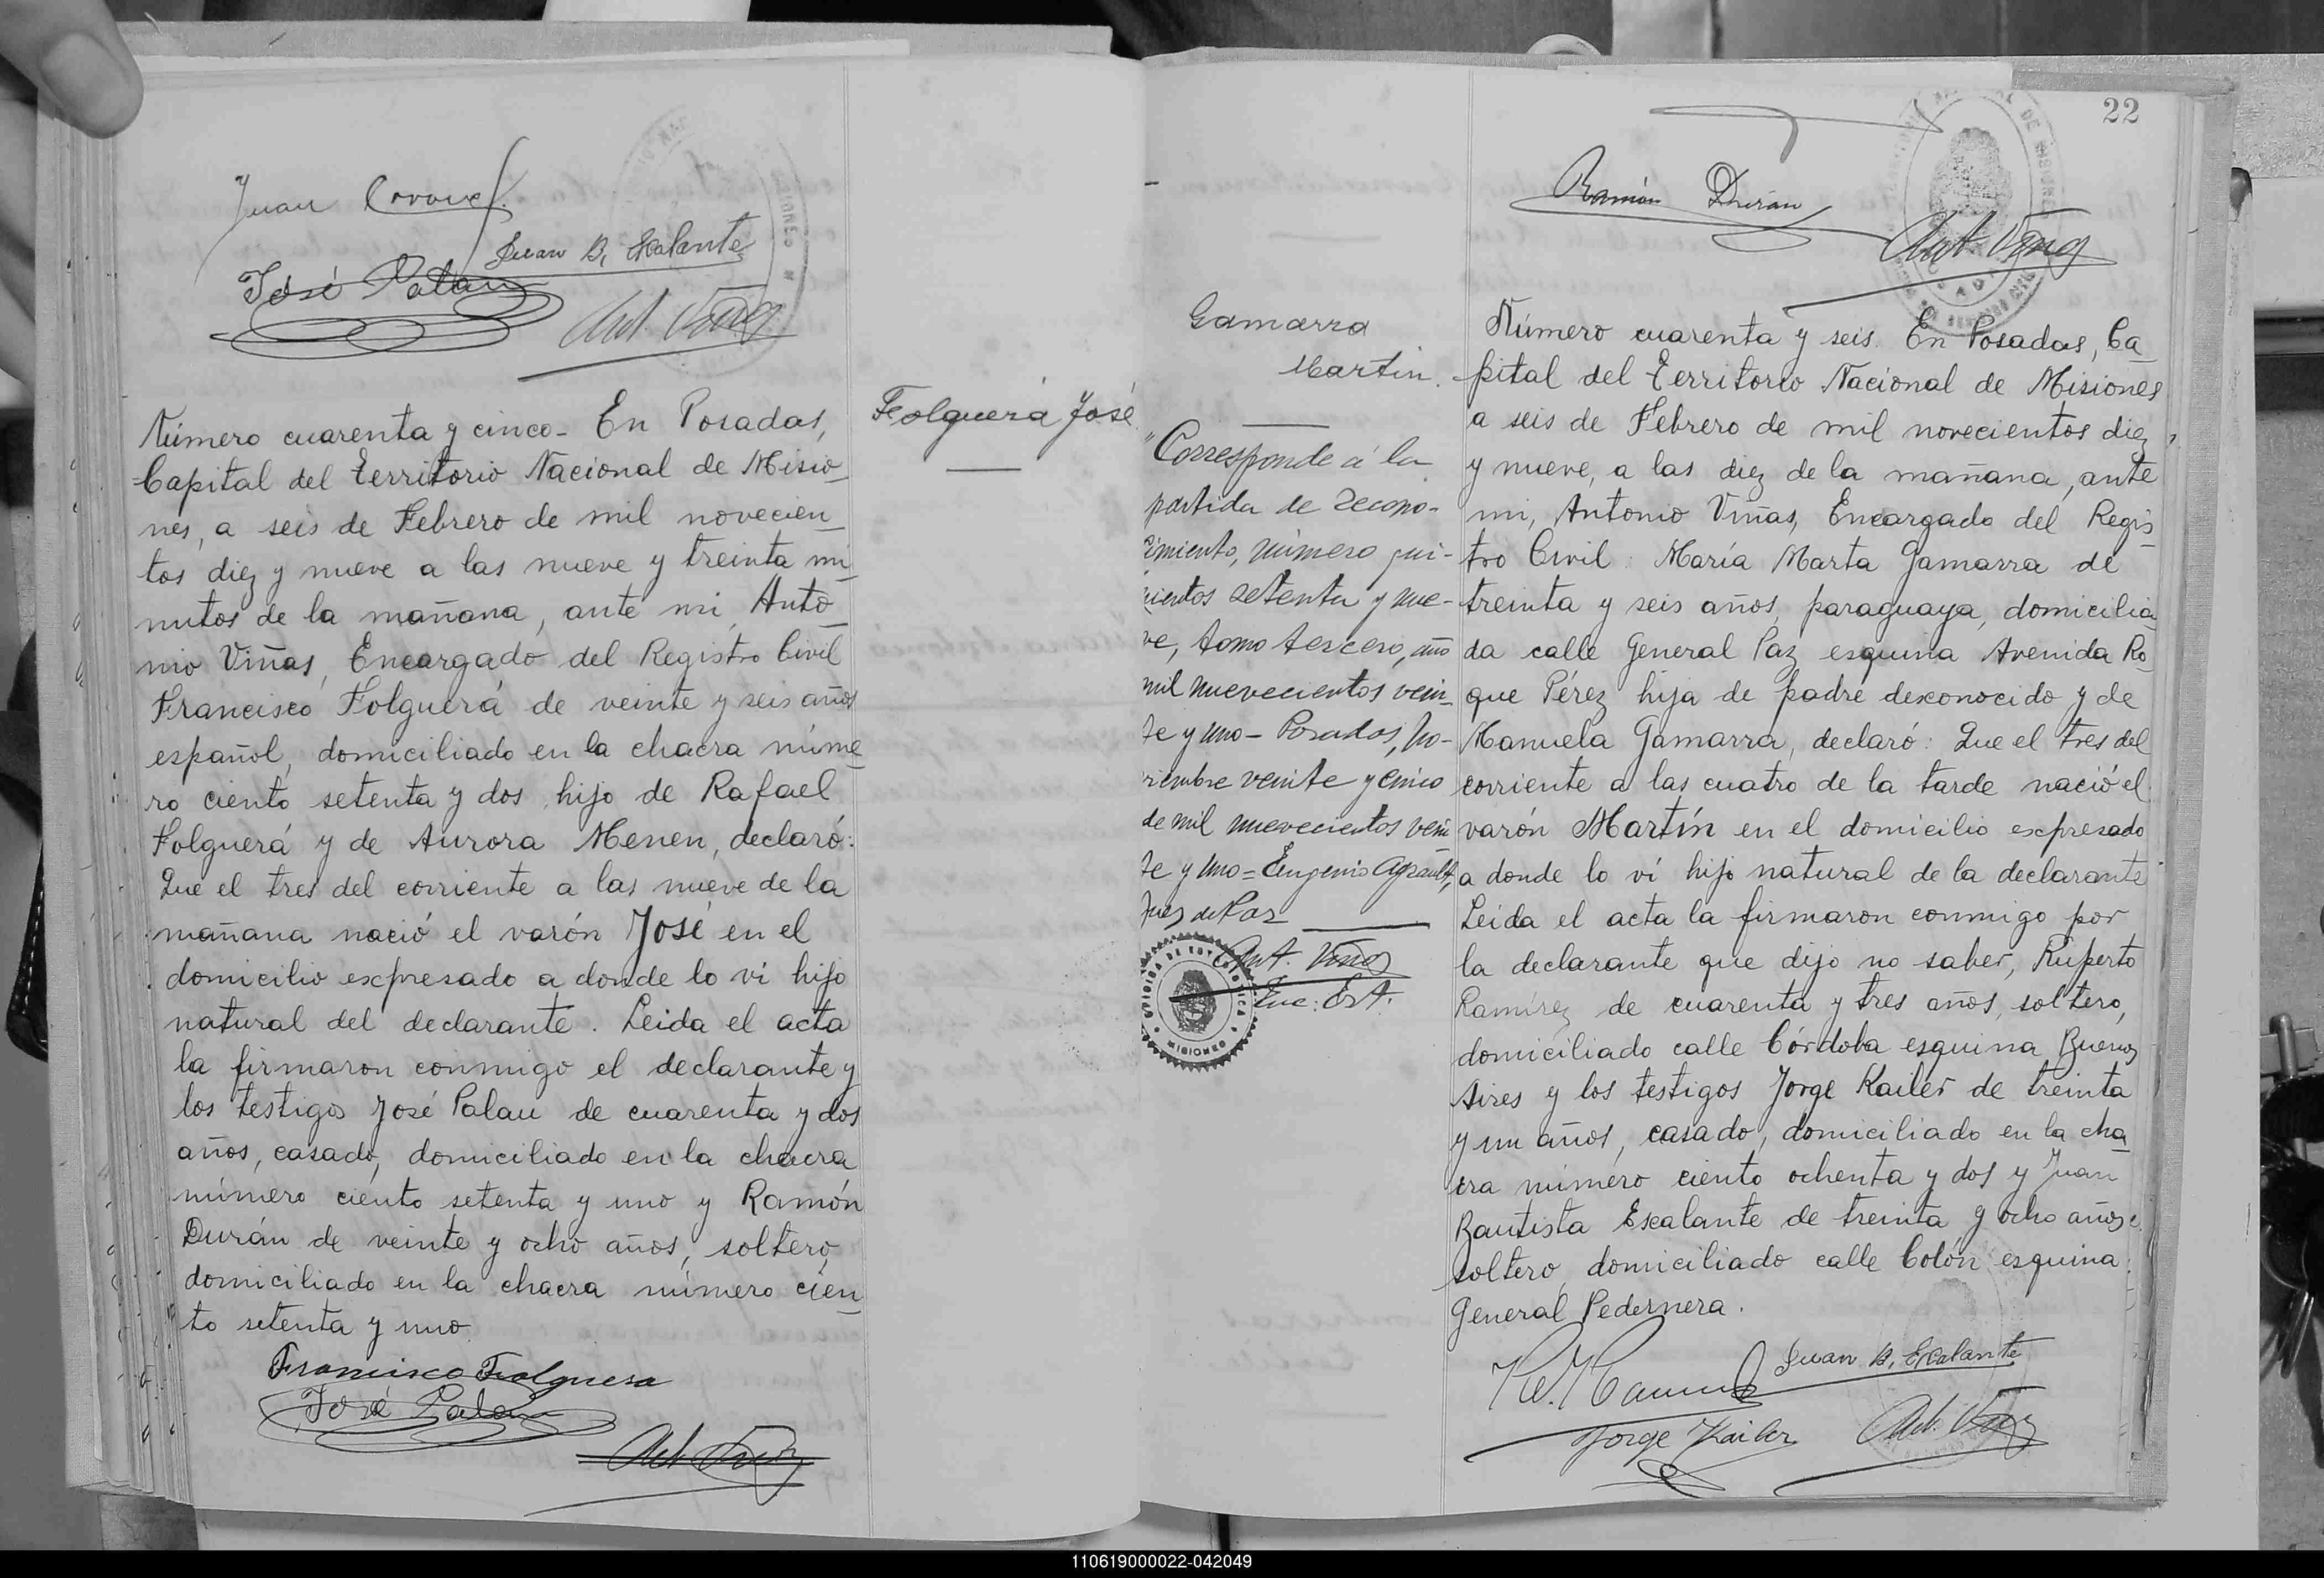 Juan
Juan B. Escalante
José Palau
Ant. Viñas
Número cuarenta y cinco- En Posadas,
Capital del Territorio Nacional de Misio
nes, a seis de Febrero de mil novecien
tos diez y nueve a las nueve y treinta mi
nutos de la mañana, ante mi, Anto
nio Viñas, Encargado del Registro Civil
Francisco Folguerá de veinte y seis años
español, domiciliado en la chacra núme
ro ciento setenta y dos, hijo de Rafael
Folguerá y de Aurora Menen, declaró:
Que el tres del corriente a las nueve de la
mañana nació el varón José en el
domicilio expresado a donde lo ví hijo
natural del declarante. Leida el acta
la firmaron conmigo el declarante y
los testigos José Palau de cuarenta y dos
años, casado, domiciliado en la chacra
número ciento setenta y uno y Ramón
Durán de veinte y ocho años, soltero,
domiciliado en la chacra número cien
to setenta y uno.
Francisco Folguera
José Palau
Ant. Viñas
Folguerá José
22
Ramón Durán
Ant. Viñas
Gamarra
Martín.
"Corresponde á la
partida de recono-
cimiento, número qui-
nientos setenta y nue-
ve, tomo tercero, año
mil nuevecientos vein
te y uno- Posadas, No-
viembre veinte y cinco
de mil nuevecientos vein
te y uno= Eugenio
Juez de Paz
Ant. Viñas
Enc. Est.
MISIONES
Número cuarenta y seis. En Posadas, Ca
pital del Territorio Nacional de Misiones
a seis de Febrero de mil novecientos diez
y nueve, a las diez de la mañana, ante
mi, Antonio Viñas, Encargado del Regis
tro Civil: María Marta Gamarra de
treinta y seis años, paraguaya, domicilia
da calle General Paz esquina Avenida Ro
que Pérez hija de padre desconocido y de
Manuela Gamarra, declaró: Que el tres del
corriente a las cuatro de la tarde nació el
varón Martín en el domicilio expresado
a donde lo ví hijo natural de la declarante
Leida el acta la firmaron conmigo por
la declarante que dijo no saber, Ruperto
Ramírez de cuarenta y tres años, soltero,
domiciliado calle Córdoba esquina Buenos
Aires y los testigos Jorge Kailer de treinta
y un años, casado, domiciliado en la cha
cra número ciento ochenta y dos y Juan
Bautista Escalante de treinta y ocho años
soltero, domiciliado calle Colón esquina
General Pedernera.
Juan B. Escalante
Jorge Kailer
Ant. Viñas
110619000022-042049